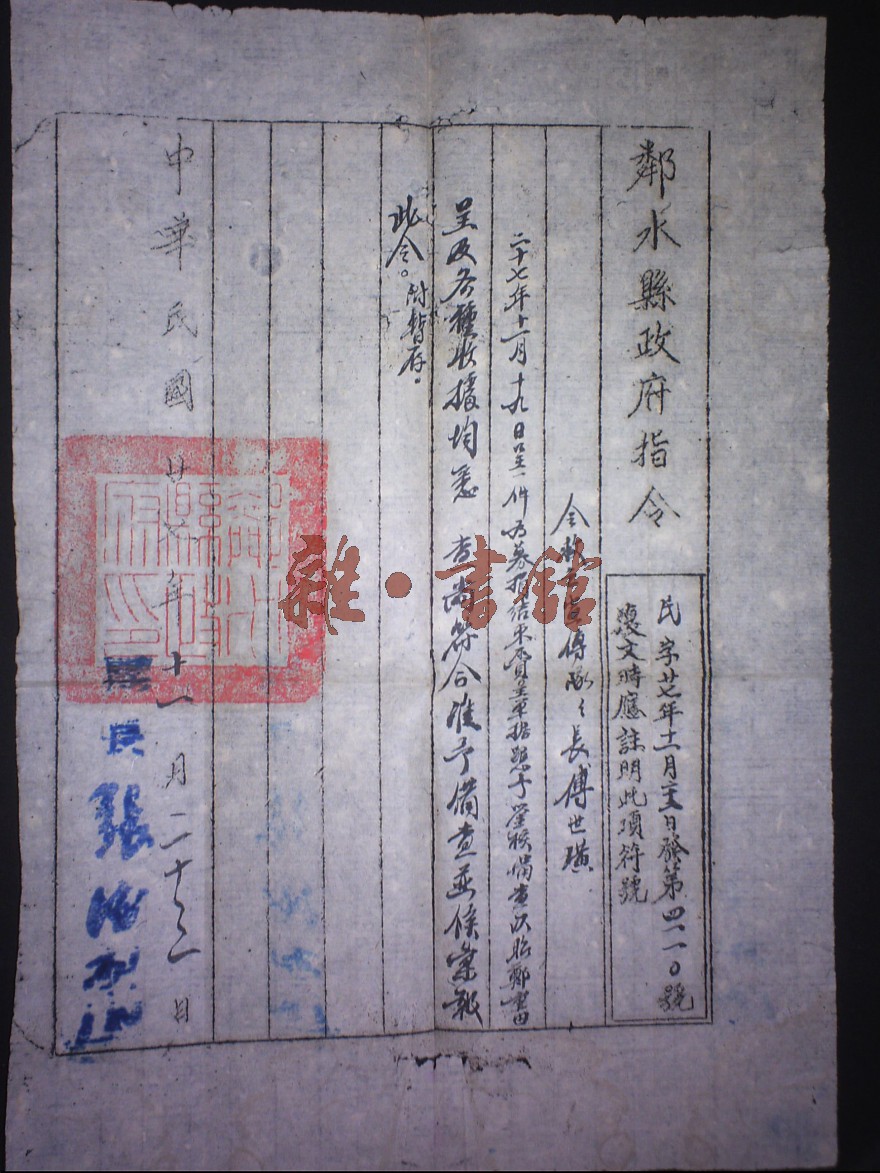 鄰水縣政府指令
民字廿七年十一月廿三日發第四一一〇號
復文時應註明此項符號
令 宣傳隊隊長傅世璜
二十七年十一月十九日呈一件為募捐結束 呈單據懇予鑒核備查
呈及各種收據均悉 查尚符合准予備查並候彙報
此令。附暫存。
中華民國廿七年十一月二十三日
縣長張
雜·書館